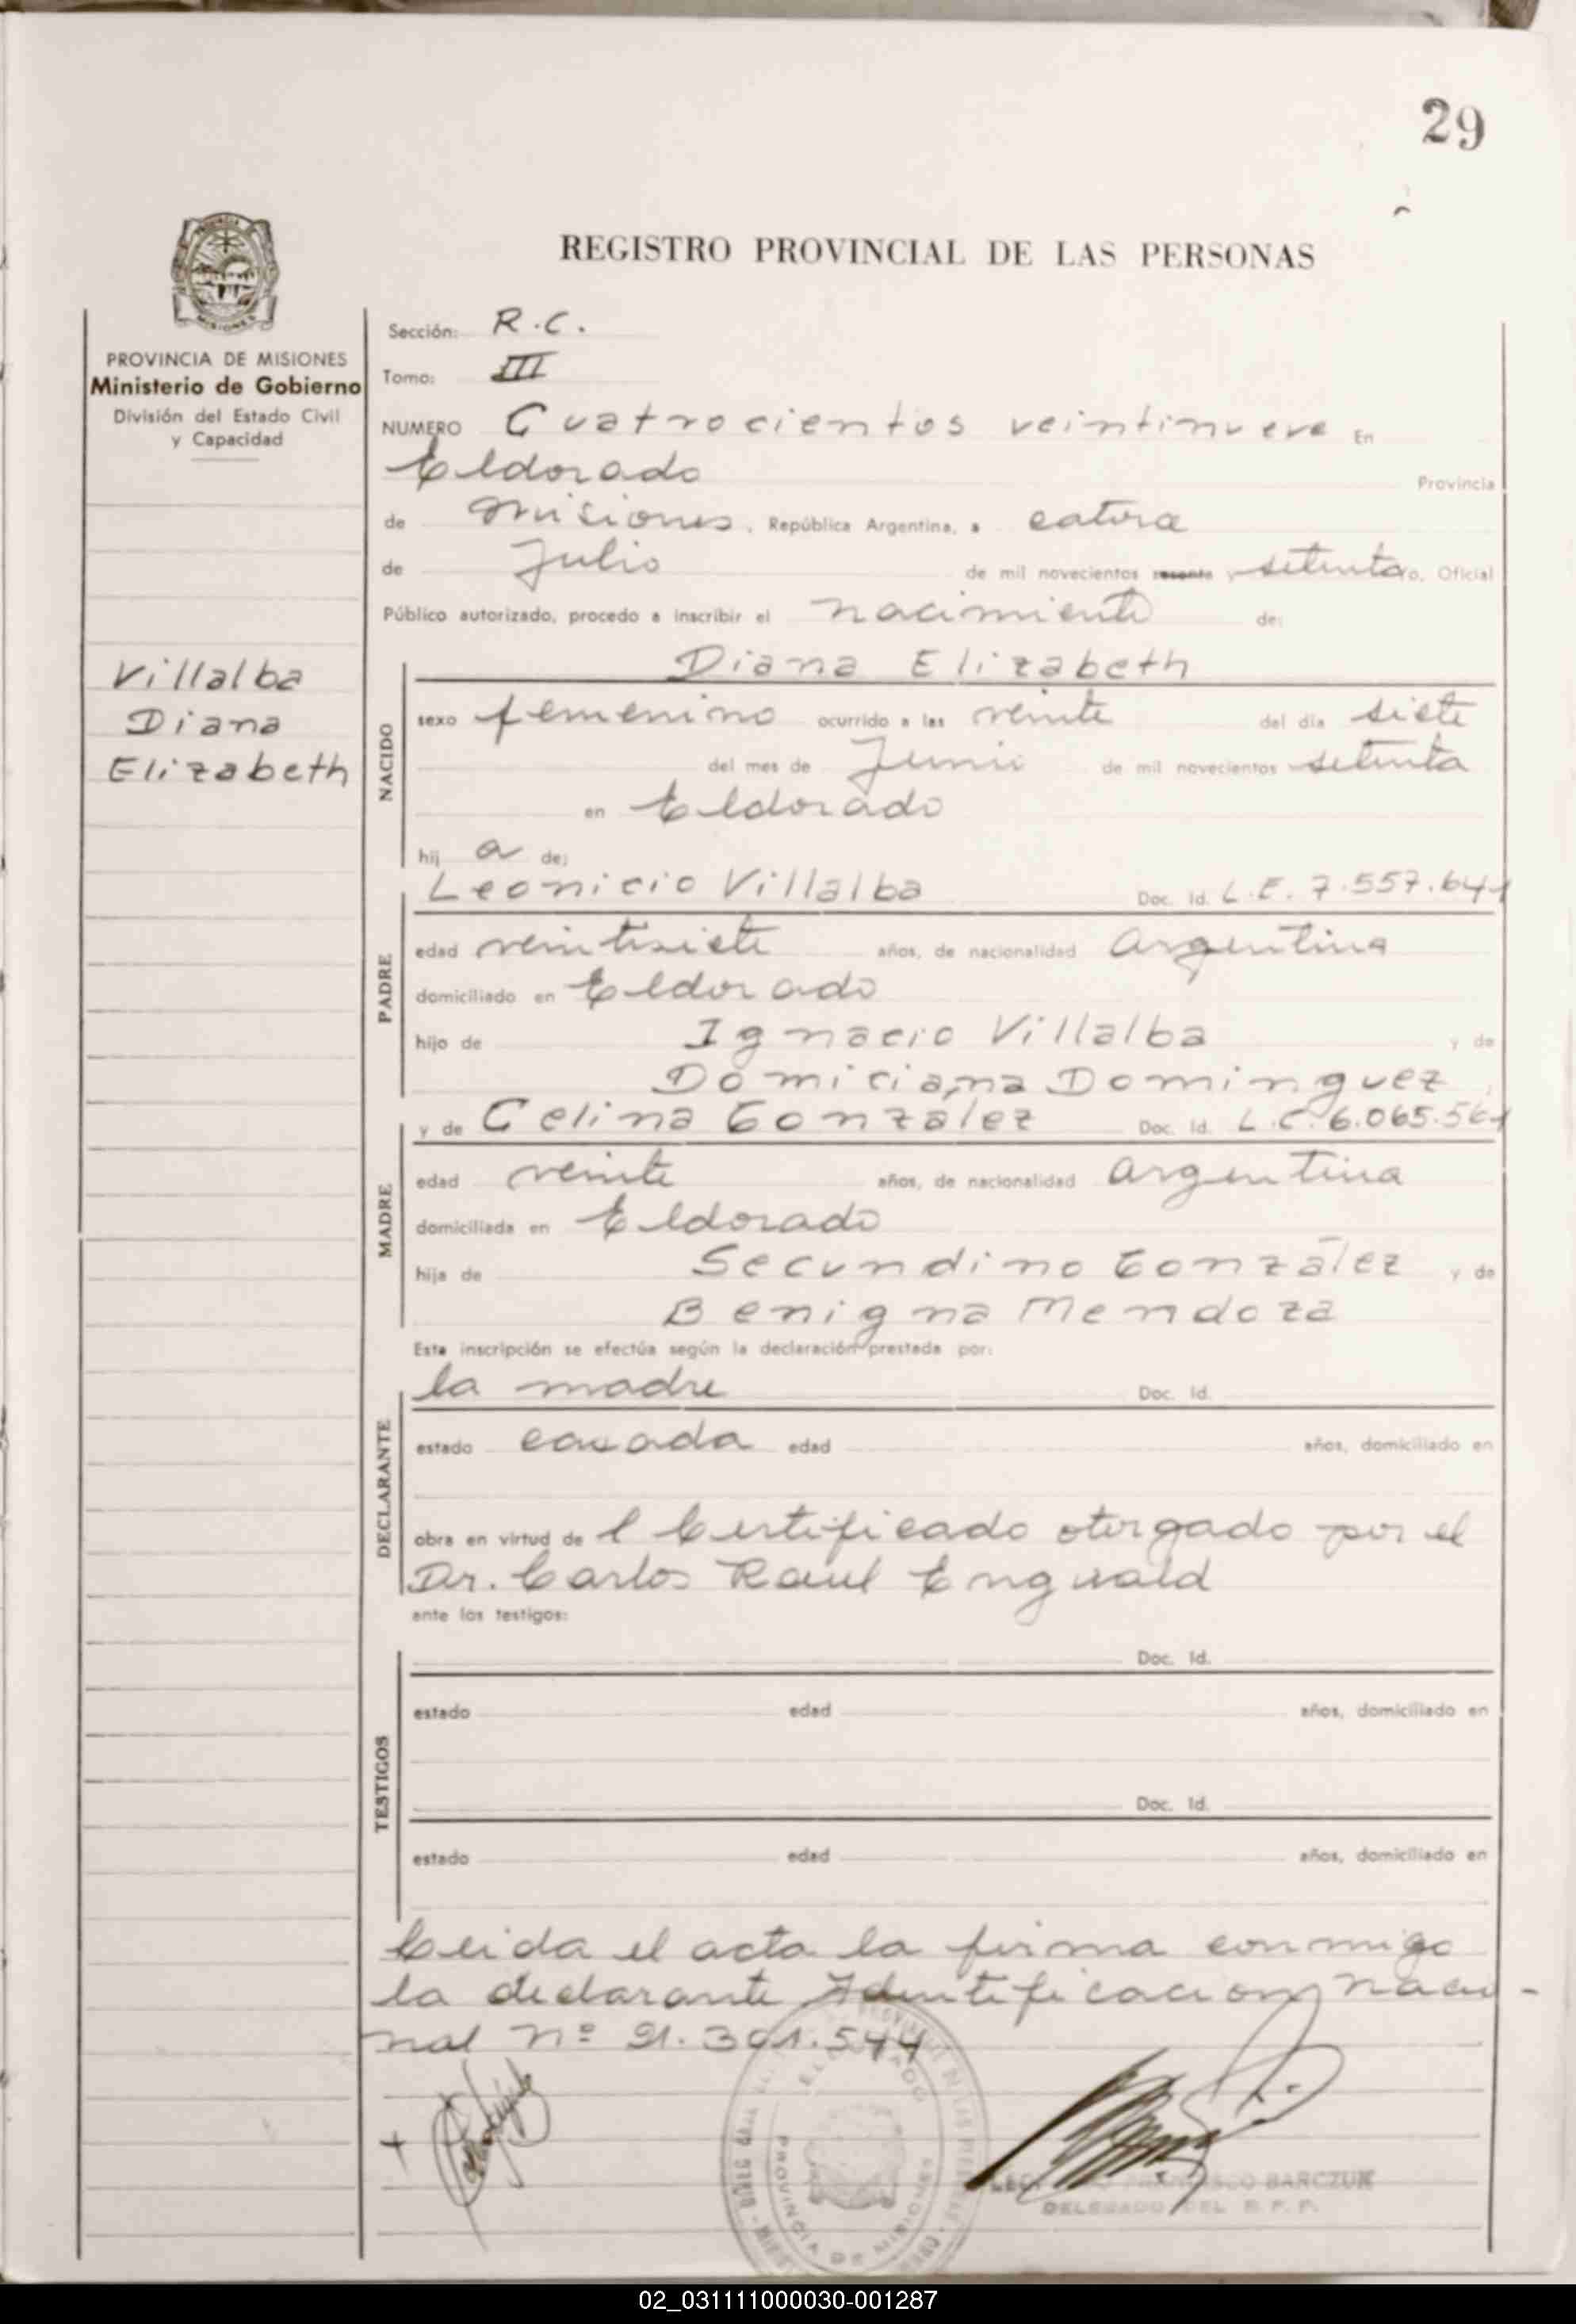 29
REGISTRO PROVINCIAL DE LAS PERSONAS
PROVINCIA DE MISIONES
Ministerio de Gobierno
División del Estado Civil
y Capacidad
Villalba
Diana
Elizabeth
Sección: R.C.
Tomo: III
NUMERO Cuatrocientos veintinueve En
Eldorado Provincia
de Misiones, República Argentina, a catorce
de Julio de mil novecientos y setenta yo, Oficial
Público autorizado, procedo a inscribir el nacimiento de:
Diana Elizabeth
NACIDO
sexo femenino ocurrido a las veinte del día siete
del mes de Junio de mil novecientos setenta
en Eldorado
hij a de:
Leonicio Villalba Doc. Id. L.E. 7.557.641
PADRE
edad veintisiete años, de nacionalidad argentina
domiciliado en Eldorado
hijo de Ignacio Villalba y de
Domiciana Dominguez
y de Celina González Doc. Id. L.C. 6.065.561
MADRE
edad veinte años, de nacionalidad argentina
domiciliada en Eldorado
hija de Secundino González y de
Benigna Mendoza
Esta inscripción se efectúa según la declaración prestada por:
la madre Doc. Id.
DECLARANTE
estado casada edad años, domiciliado en
obra en virtud de l Certificado otorgado por el
Dr. Carlos Raul
ante los testigos:
Doc. Id.
TESTIGOS
estado edad años, domiciliado en
Doc. Id.
estado edad años, domiciliado en
Leida el acta la firma conmigo
la declarante Identificacion Nacio-
nal nº
PROVINCIA DE MISIONES
FRANCISCO BARCZUK
DELEGADO DEL R. P. P.
02_031111000030-001287